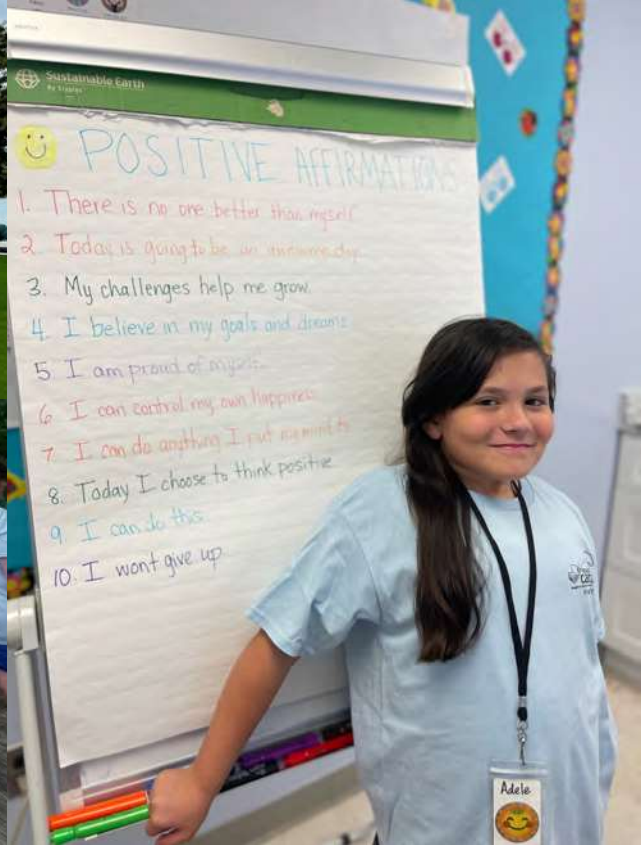 Sustainable Earth
By Staples
POSITIVE AFFIRMATIONS
1. There is no one better than myself
2. Today is going to be an awesome day
3. My challenges help me grow.
4. I believe in my goals and dreams
5. I am proud of myself.
6. I can control my own happiness
7. I can do anything I put my mind to
8. Today I choose to think positive
9. I can do this.
10. I wont give up.
Adele